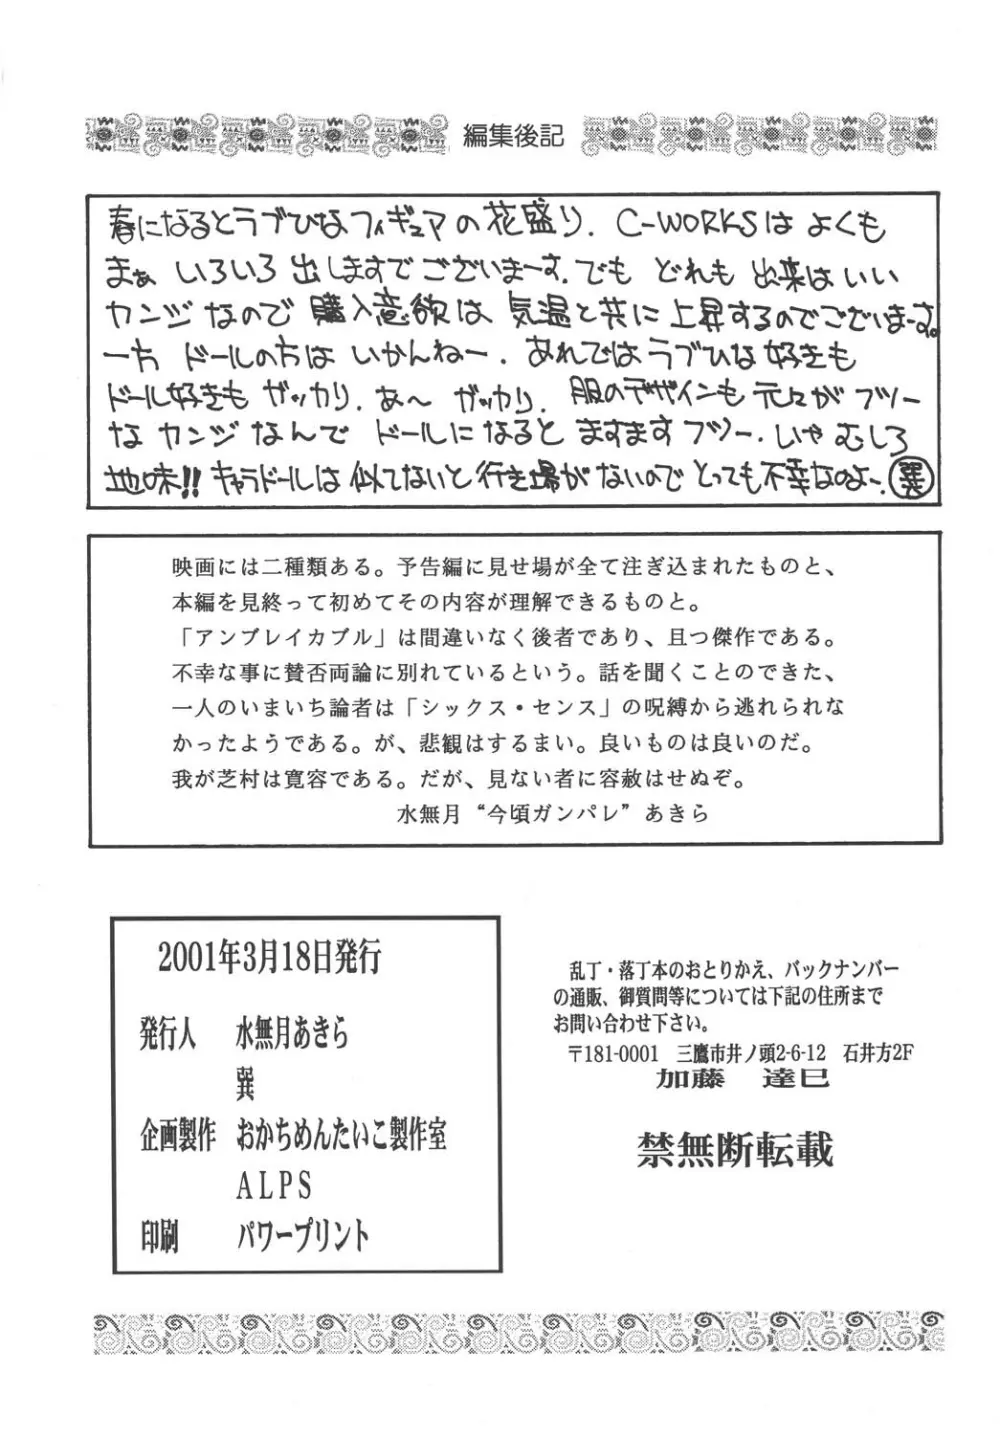 編集後記
春になるとラブひなフィギュアの花盛り. C-WORKSは よくも
まぁ いろいろ 出しますでございまーす. でも どれも 出来はいい
カンジなので 購入意欲は 気温と共に上昇するのでございまーす。
一方 ドールの方は いかんねー. あれではラブひな好きも
ドール好きも ガッカリ. あ〜 ガッカリ. 服のデザインも 元々がフツー
な カンジなんで ドールになると ますますフツー. いや むしろ
地味!! キャラドールは 似てないと行き場がないので とっても不幸なのよー. 巽
映画には二種類ある。予告編に見せ場が全て注ぎ込まれたものと、
本編を見終って初めてその内容が理解できるものと。
「アンブレイカブル」は間違いなく後者であり、且つ傑作である。
不幸な事に賛否両論に別れているという。話を聞くことのできた、
一人のいまいち論者は「シックス・センス」の呪縛から逃れられな
かったようである。が、悲観はするまい。良いものは良いのだ。
我が芝村は寛容である。だが、見ない者に容赦はせぬぞ。
水無月“今頃ガンパレ”あきら
2001年3月18日発行
発行人 水無月あきら
巽
企画製作 おかちめんたいこ製作室
ALPS
印刷 パワープリント
乱丁・落丁本のおとりかえ、バックナンバー
の通販、御質問等については下記の住所まで
お問い合わせ下さい。
〒181-0001 三鷹市井ノ頭2-6-12 石井方2F
加藤 達巳
禁無断転載